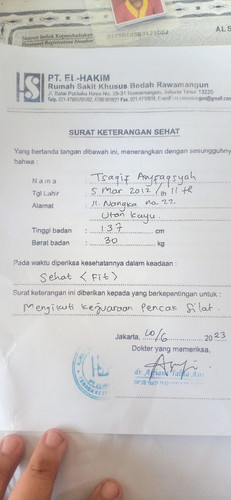 PT. EL-HAKIM
Rumah Sakit Khusus Bedah Rawamangun
SURAT KETERANGAN SEHAT
Yang bertanda tangan dibawah ini, menerangkan dengan sesungguhnya
bahwa :
Nama : Tsaqif
Tgl Lahir : 5 Mar 2012 / 11 th
Alamat : Jl. Nangka no. 22.
Utan Kayu.
Tinggi badan : 137 cm
Berat badan : 30 kg
Pada waktu diperiksa kesehatannya dalam keadaan :
Sehat < Fit >
Surat keterangan ini diberikan kepada yang berkepentingan untuk :
Mengikuti Kejuaraan Pencak Silat.
Jakarta, 10/6 2023
Dokter yang memeriksa,